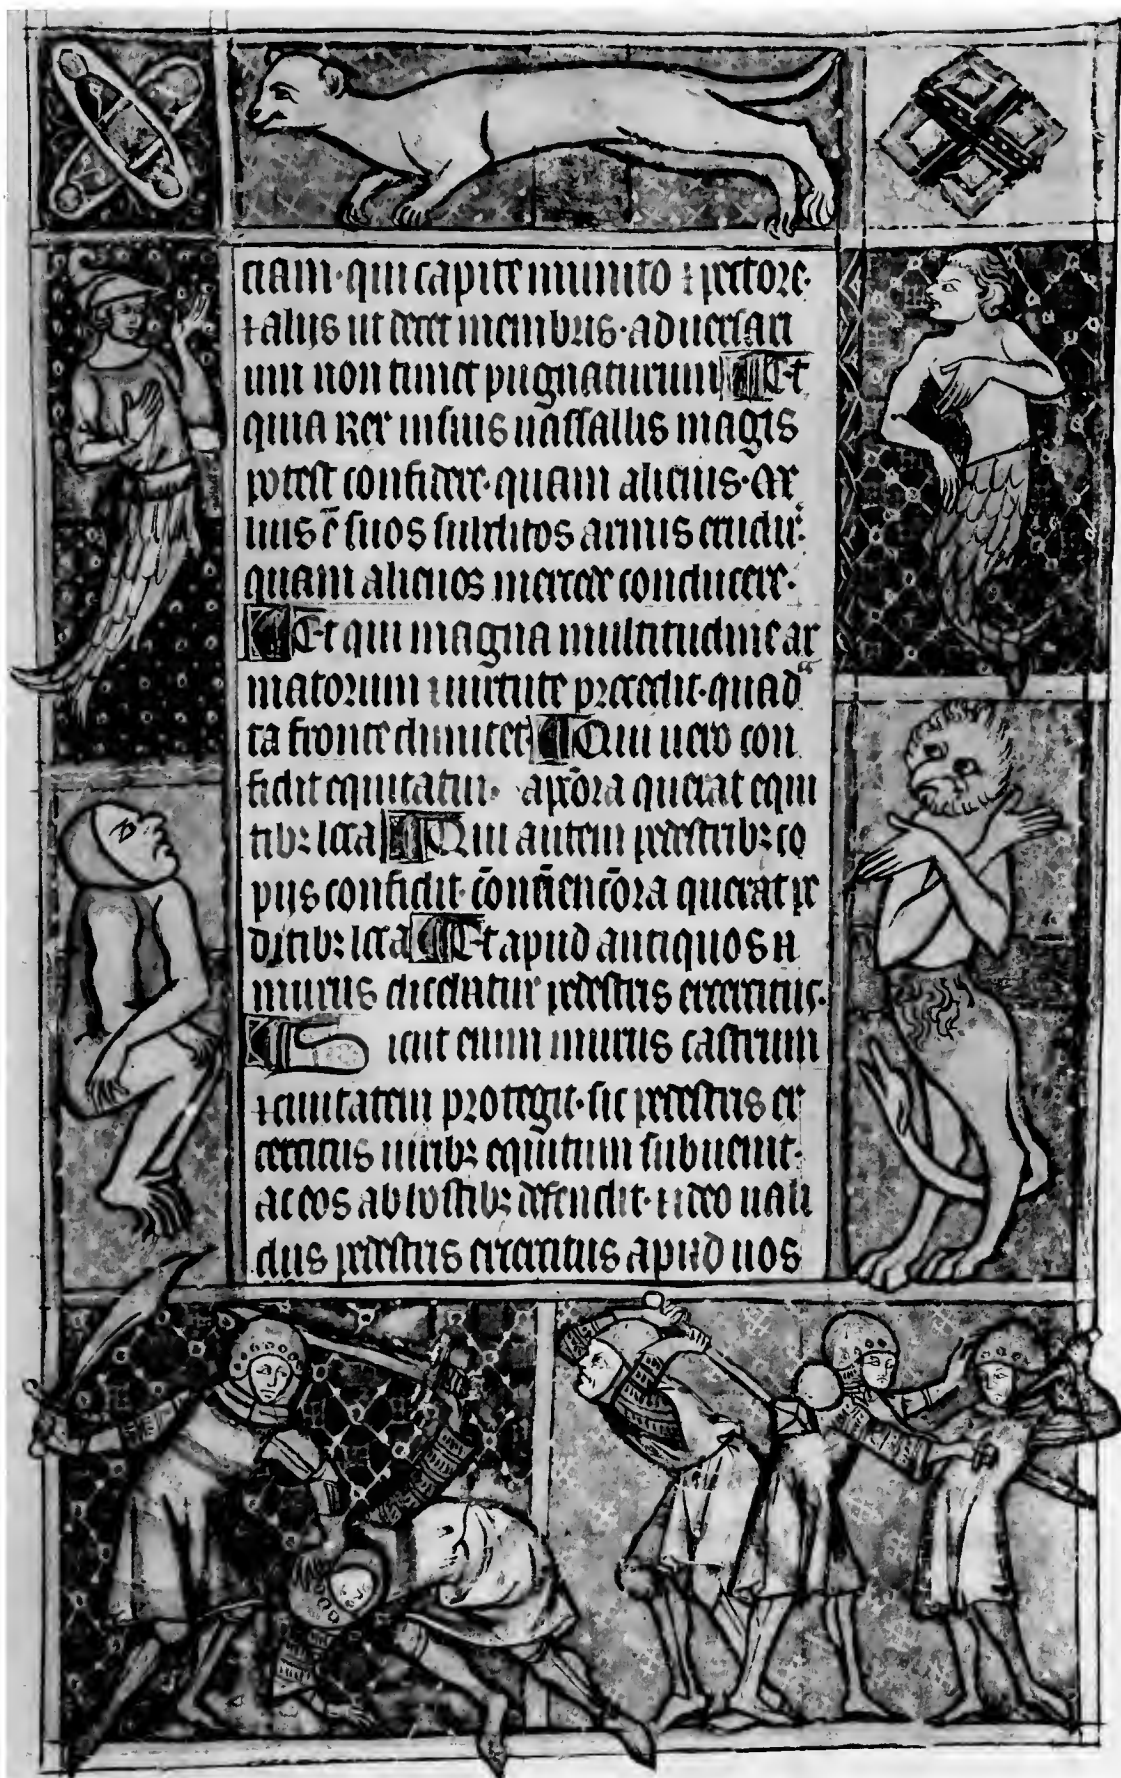 ciam· qui capite munito ⁊ pectore·
⁊ alijs ut decet membris· aduersari
um non timet pugnaturum Et
quia Rex in suis uassallis magis
potest confidere· quam alienis· Me
lius ē suos subditos armis erudire·
quam alienos mercede conducere·
Et qui magna multitudine ar
matorum ⁊ uirtute precedit· quadra
ta fronte dimicet Qui uero con
fidit equitatui· aptiora querat equi
tibꝫ loca Qui autem pedestribꝫ co
pijs confidit· cōueniencōra querat pe
ditibꝫ loca Et apud antiquos
murus dicebatur pedestris exercitus·
Sicut enim murus castrum
⁊ ciuitatem protegit· sic pedestris ex
ercitus uiribꝫ equitum subuenit·
ac eos ab hostibꝫ defendit· ⁊ ideo uali
dus pedestris exercitus apud uos